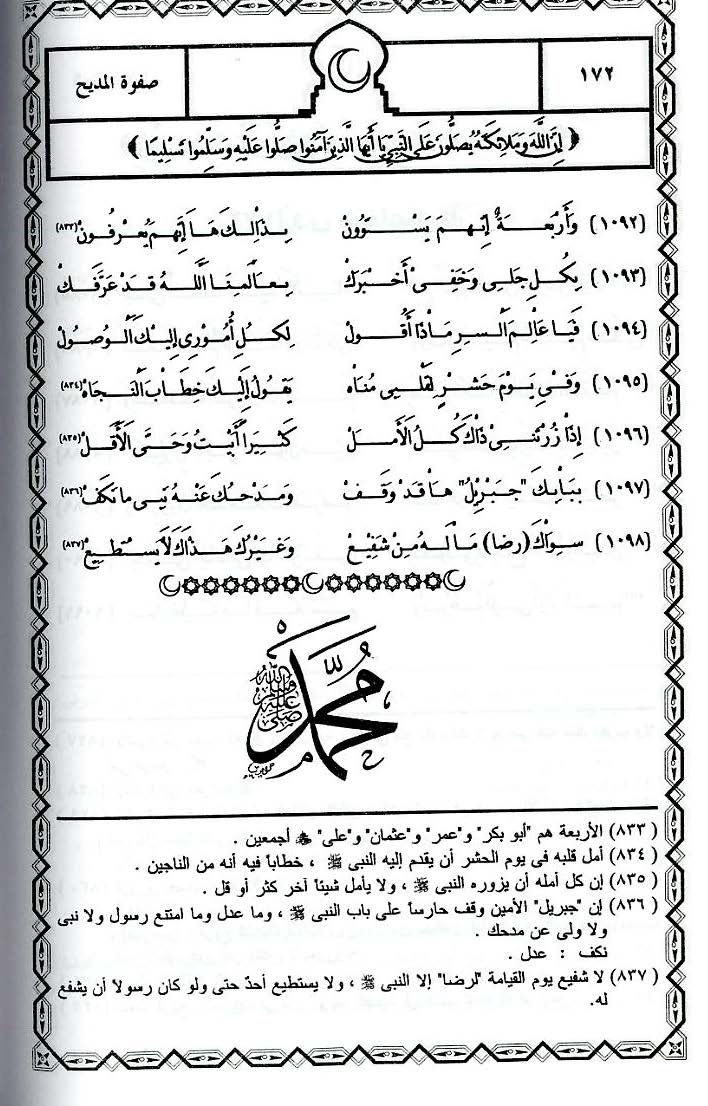 ١٧٢
صفوة المديح
﴿ إِنَّ اللَّهَ وَمَلَائِكَتَهُ يُصَلُّونَ عَلَى النَّبِيِّ يَا أَيُّهَا الَّذِينَ آمَنُوا صَلُّوا عَلَيْهِ وَسَلِّمُوا تَسْلِيمًا ﴾
(١٠٩٢) وَأَرْبَعَةٌ إنهم يَسْتَوُونْ بذالِكَ هَا إنَّهم يُعرفُونْ(٨٣٣)
(١٠٩٣) بِكُلِ جَلى وَخَفِى أَخْبَرَكْ بعالمنَا اللَّهُ قَدْ عَرَّفَكْ
(١٠٩٤) فَيَا عَالِمَ السرِ مَاذَا أَقُولْ لِكُلِ أُمُوْرِى إليْكَ الْوُصُولْ
(١٠٩٥) وَفى يَوْمَ حَشْرٍ لِقلبى مُنَاه يَقُولُ إلَيْكَ خِطَابَ النَّجَاهْ(٨٣٤)
(١٠٩٦) إذَا زُرْتَنى ذَاكَ كُلُ الأَمَلْ كَثِيرَاً أَبَيْتُ وَحَتَّى الأَقَلْ(٨٣٥)
(١٠٩٧) بِبَابِكَ "جبْرِيْلُ" هَا قَدْ وَقَفْ وَمَدْحُكَ عَنْهُ نَبى مانَكَفْ(٨٣٦)
(١٠٩٨) سِوَاكَ (رضا) مَا لَهُ مِنْ شَفِيْعْ وَغَيْرُكَ هَذَاكَ لَا يَسْتَطِيعْ(٨٣٧)
محمد
صلى الله عليه وسلم
(٨٣٣) الأربعة هم "أبو بكر" و"عمر" و"عثمان" و"على" ﷺ أجمعين .
(٨٣٤) أمل قلبه فى يوم الحشر أن يقدم إليه النبى ﷺ ، خطاباً فيه أنه من الناجين .
(٨٣٥) إن كل أمله أن يزوره النبى ﷺ ، ولا يأمل شيئاً آخر كثر أو قل .
(٨٣٦) إن "جبريل" الأمين وقف حارساً على باب النبى ﷺ ، وما عدل وما امتنع رسول ولا نبى
ولا ولى عن مدحك .
نكف : عدل .
(٨٣٧) لا شفيع يوم القيامة "لرضا" إلا النبى ﷺ ، ولا يستطيع أحدٌ حتى ولو كان رسولاً أن يشفع
له.